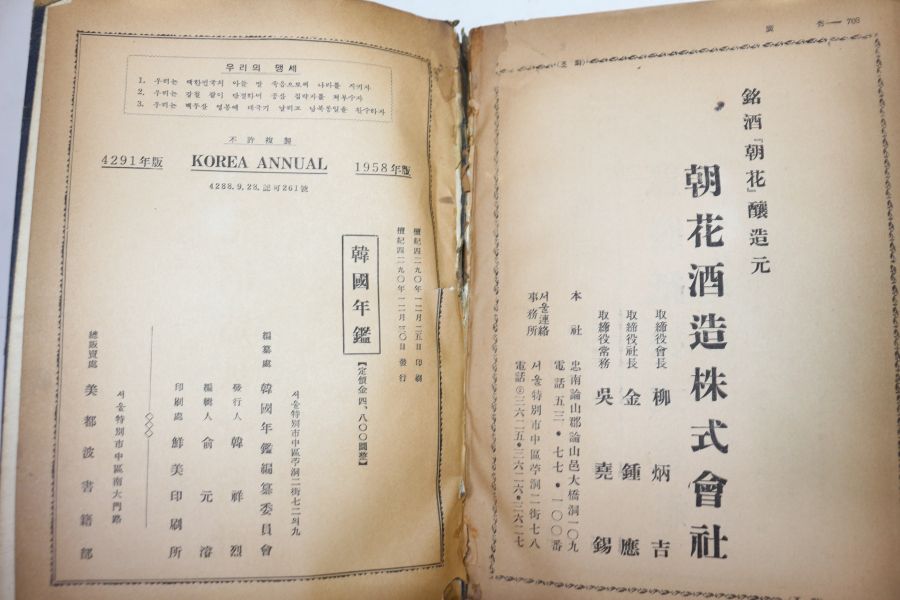 우리의 맹세
1. 우리는 대한민국의 아들 딸 죽음으로써 나라를 지키자
2. 우리는 강철 같이 단결하여 공산 침략자를 쳐부수자
3. 우리는 백두산 영봉에 태극기 날리고 남북통일을 완수하자
不許複製
4291年版 KOREA ANNUAL 1958年版
4288.9.23. 認可261號
檀紀四二九〇年一二月二五日 印刷
檀紀四二九〇年一二月三〇日 發行
韓國年鑑
【定價金四、八〇〇圜整】
서울特別市中區苧洞二街七二의九
編纂處 韓國年鑑編纂委員會
發行人 韓祥烈
編輯人 兪元濬
印刷處 鮮美印刷所
서울特別市中區南大門路
總販賣處 美都波書籍部
廣告—703
銘酒『朝花』釀造元
朝花酒造株式會社
取締役會長 柳炳吉
取締役社長 金鍾應
取締役常務 吳堯錫
本社 忠南論山郡論山邑大橋洞一〇九
電話 五三・七七・一〇〇番
서울連絡事務所 서울特別市中區苧洞二街七八
電話②三六二五・三六二六・三六二七